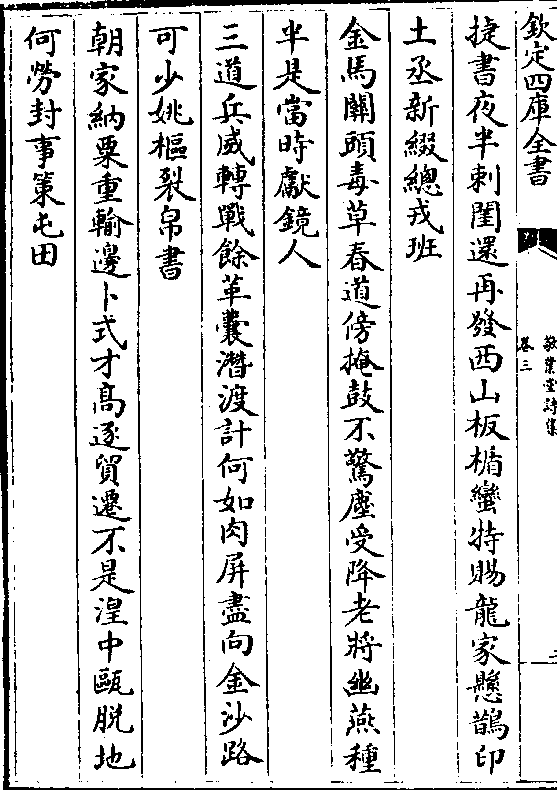 欽定四庫全書
敬業堂詩集
卷三
捷書夜半刺閨還再發西山板楯蠻特賜龍家懸鵲印
土丞新綴總戎班
金馬關頭毒草春道傍掩鼓不驚塵受降老將幽燕種
半是當時獻鏡人
三道兵威轉戰餘革囊潛渡計何如肉屏盡向金沙路
可少姚樞裂帛書
朝家納粟重輸邊卜式才高逐貿遷不是湟中甌脫地
何勞封事策屯田